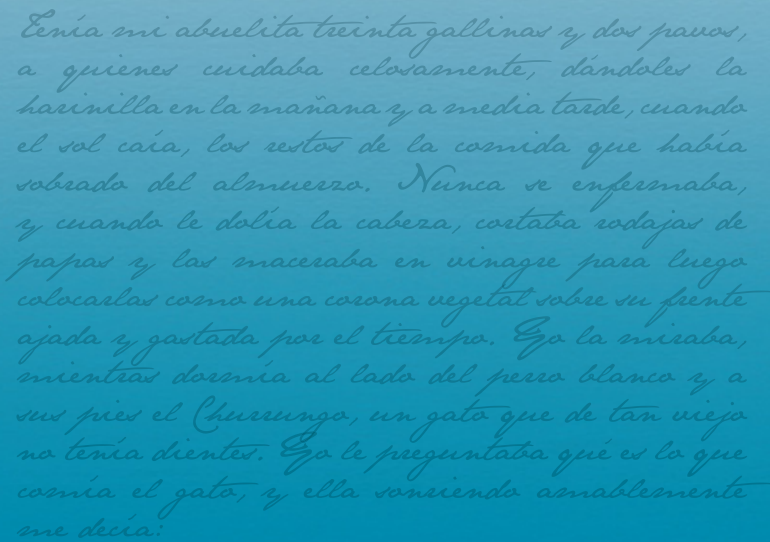 Tenía mi abuelita treinta gallinas y dos pavos,
a quienes cuidaba celosamente, dándoles la
harinilla en la mañana y a media tarde, cuando
el sol caía, los restos de la comida que había
sobrado del almuerzo. Nunca se enfermaba,
y cuando le dolía la cabeza, cortaba rodajas de
papas y las maceraba en vinagre para luego
colocarlas como una corona vegetal sobre su frente
ajada y gastada por el tiempo. Yo la miraba,
mientras dormía al lado del perro blanco y a
sus pies el Churrungo, un gato que de tan viejo
no tenía dientes. Yo le preguntaba qué es lo que
comía el gato, y ella sonriendo amablemente
me decía: